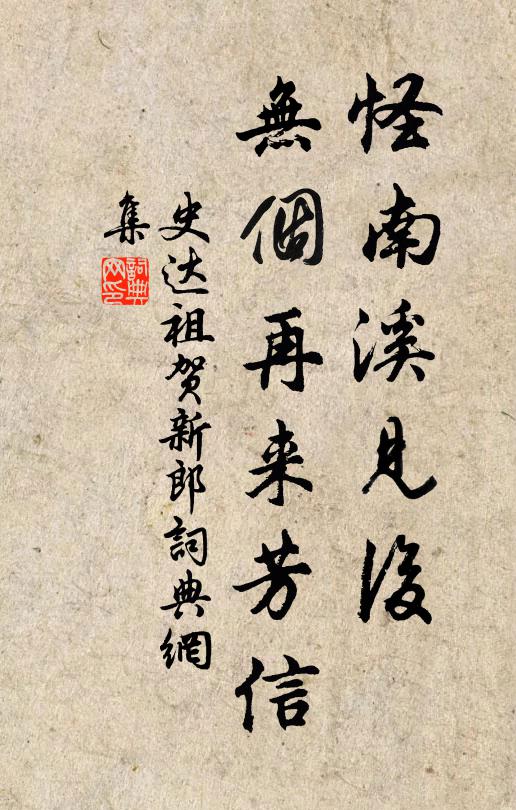 怪南溪見後
無個再来芳信
史达祖贺新郎詞典網
集
詞典网印